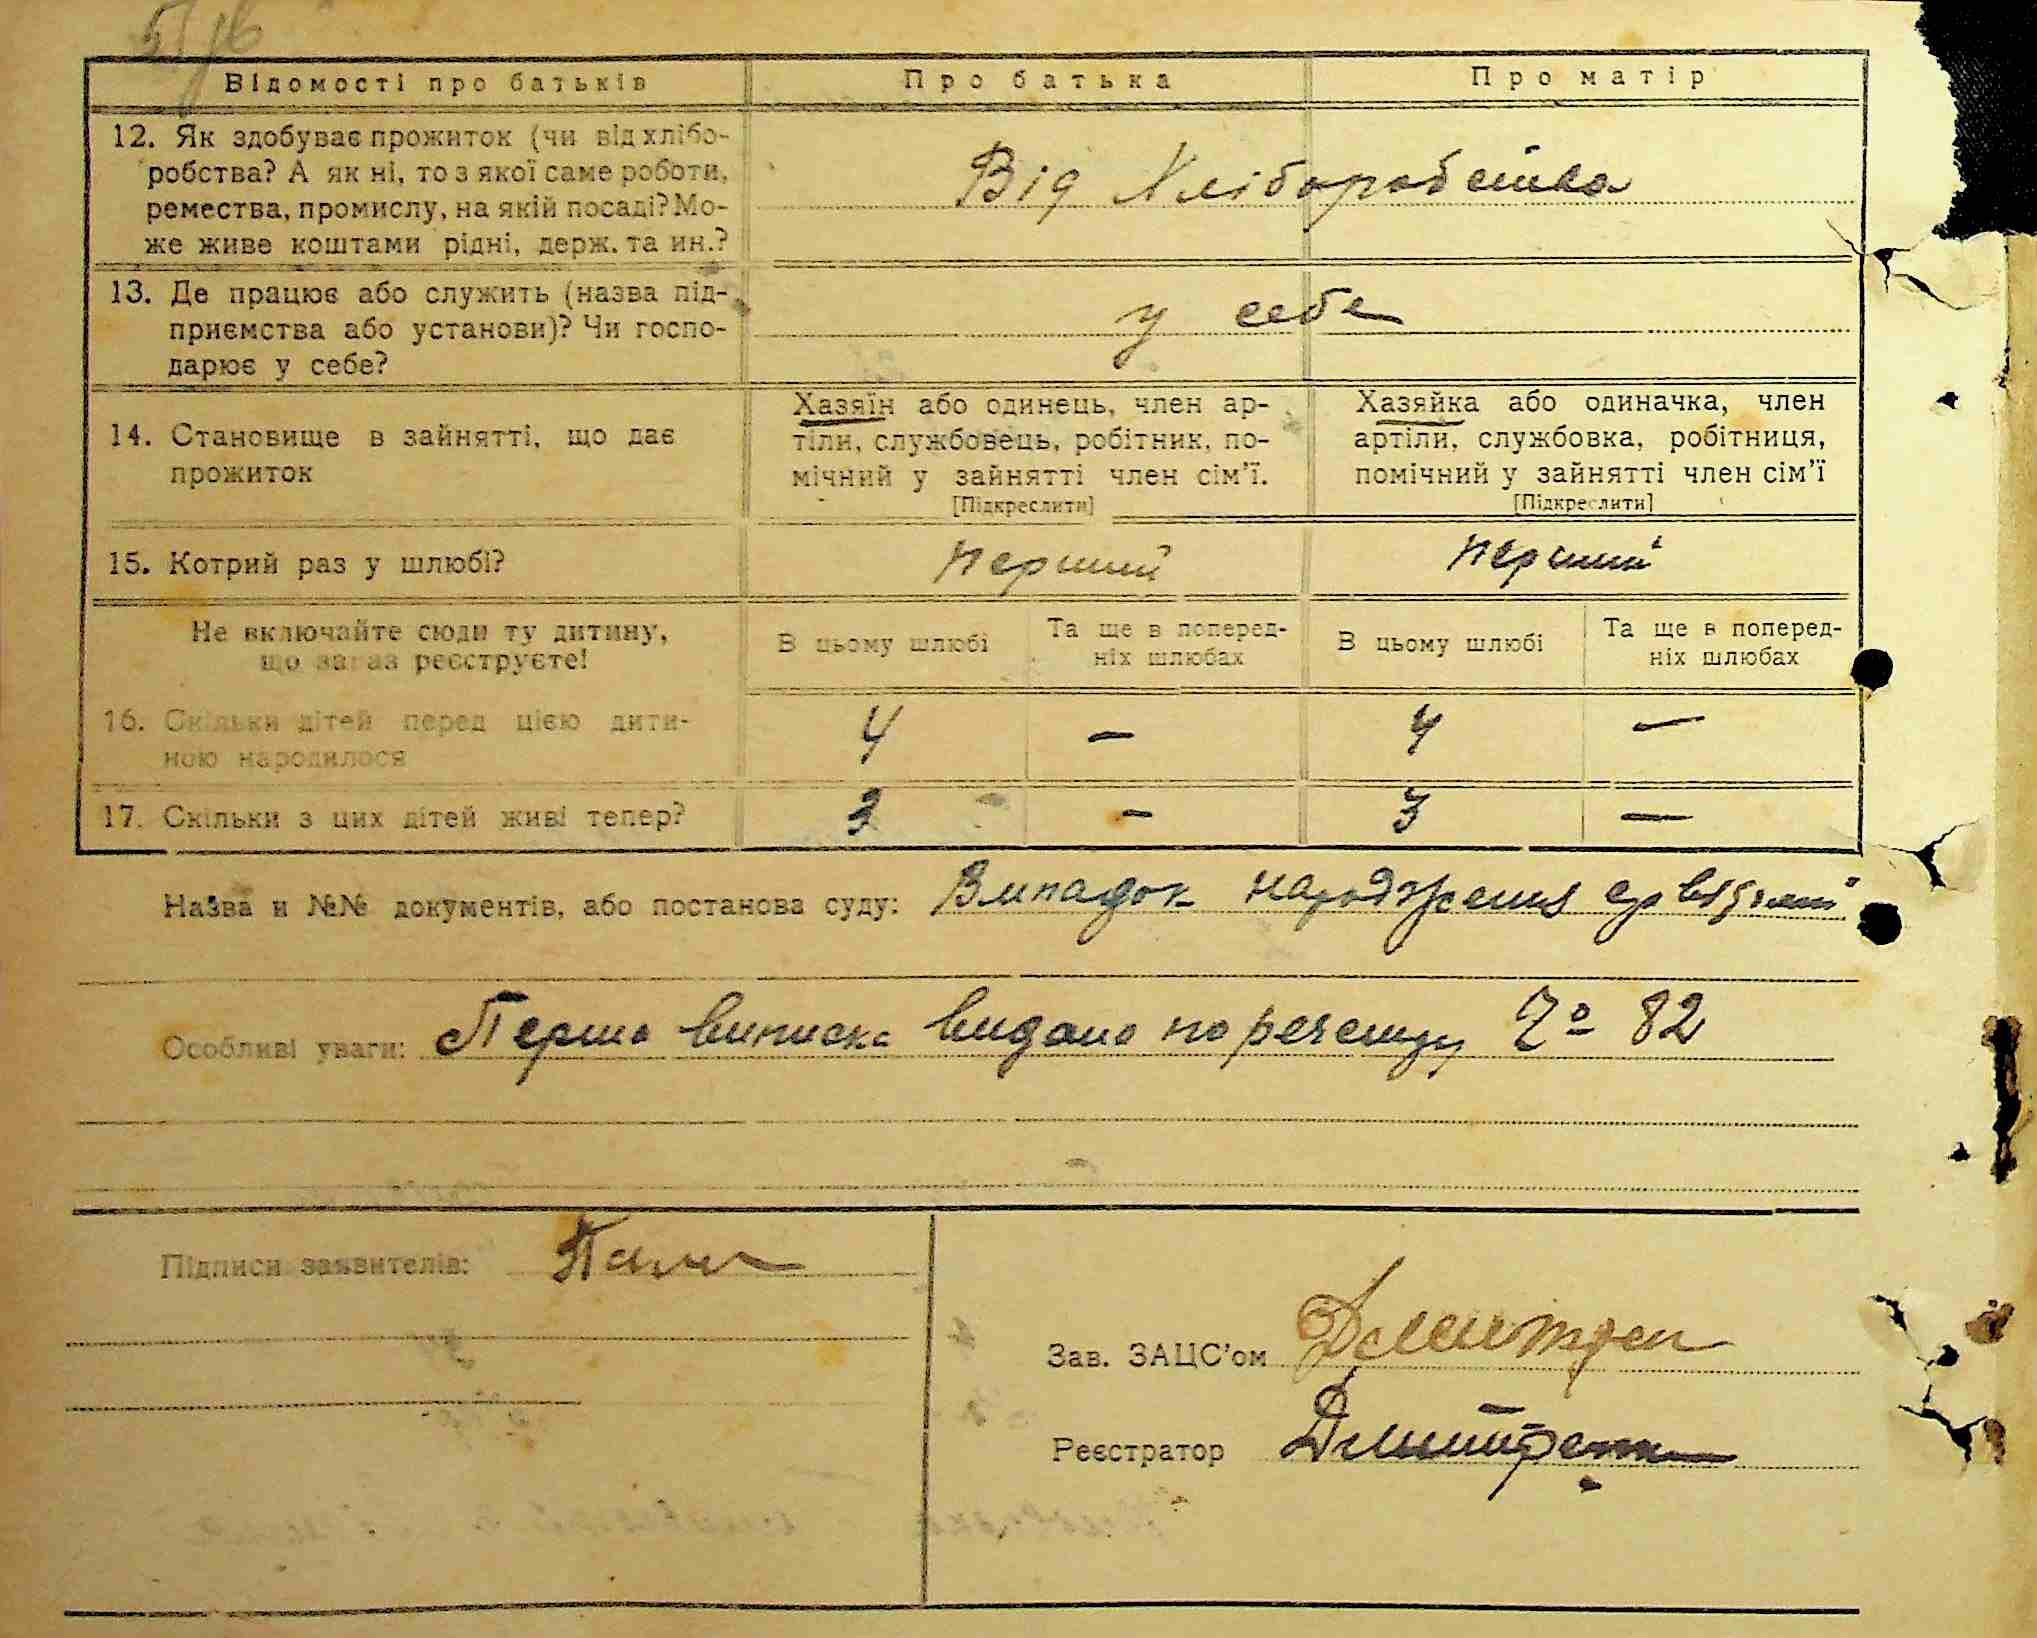 Відомості про батьків
Про батька
Про матір
12. Як здобуває прожиток (чи від хлібо-
робства? А як ні, то з якої саме роботи,
ремества, промислу, на якій посаді? Мо-
же живе коштами рідні, держ. та ин.?
Від Хліборобства
13. Де працює або служить (назва під-
приємства або установи)? Чи госпо-
дарює у себе?
у себе
14. Становище в зайнятті, що дає
прожиток
Хазяїн або одинець, член ар-
тіли, службовець, робітник, по-
мічний у зайнятті член сім'ї.
[Підкреслити]
Хазяйка або одиначка, член
артіли, службовка, робітниця,
помічний у зайнятті член сім'ї
[Підкреслити]
15. Котрий раз у шлюбі?
перший
перший
Не включайте сюди ту дитину,
що зараз реєструєте!
В цьому шлюбі
Та ще в поперед-
ніх шлюбах
В цьому шлюбі
Та ще в поперед-
ніх шлюбах
16. Скільки дітей перед цією дити-
ною народилося
4
—
4
—
17. Скільки з цих дітей живі тепер?
3
—
3
—
Назва и №№ документів, або постанова суду: Випадок народження
Особливі уваги: Перша виписка видана по реєстру № 82
Підписи заявителів:
Зав. ЗАЦС'ом
Реєстратор